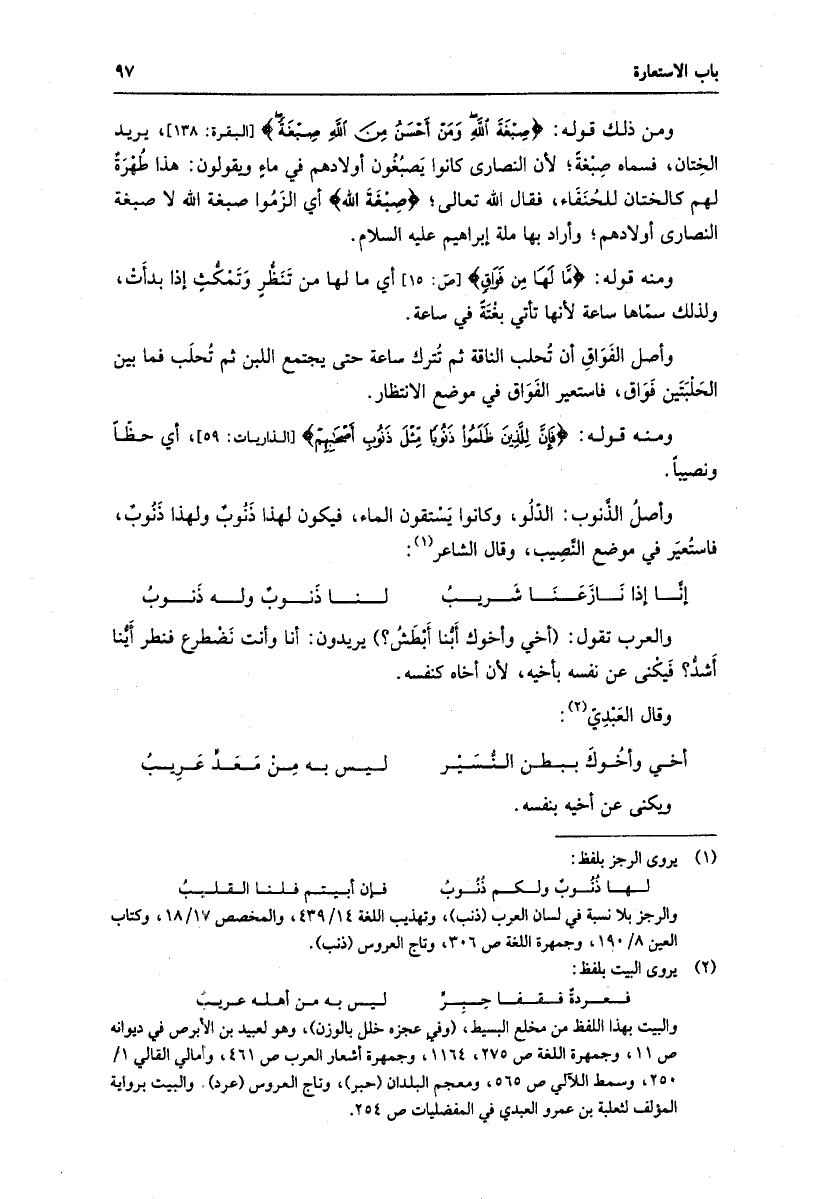 باب الاستعارة ٩٧
ومن ذلك قوله: ﴿صِبْغَةَ ٱللَّهِ وَمَنْ أَحْسَنُ مِنَ ٱللَّهِ صِبْغَةً﴾ [البقرة: ١٣٨]، يريد
الخِتان، فسماه صِبْغةً؛ لأن النصارى كانوا يَصبُغُون أولادهم في ماءٍ ويقولون: هذا طُهْرَةٌ
لهم كالختان للحُنَفَاء، فقال الله تعالى؛ ﴿صِبْغَةَ الله﴾ أي الزَمُوا صبغة الله لا صبغة
النصارى أولادهم؛ وأراد بها ملة إبراهيم عليه السلام.
ومنه قوله: ﴿مَّا لَهَا مِن فَوَاقٍ﴾ [صَ: ١٥] أي ما لها من تَنَظُّرٍ وَتَمْكُّثٍ إذا بدأَتْ،
ولذلك سمّاها ساعة لأنها تأتي بغْتَةً في ساعة.
وأصل الفَوَاقِ أن تُحلب الناقة ثم تُترك ساعة حتى يجتمع اللبن ثم تُحلَب فما بين
الحَلْبَتَين فَوَاق، فاستعير الفَوَاق في موضع الانتظار.
ومنه قوله: ﴿فَإِنَّ لِلَّذِينَ ظَلَمُواْ ذَنُوبًا مِّثْلَ ذَنُوبِ أَصْحَٰبِهِمْ﴾ [الذاريات: ٥٩]، أي حظّاً
ونصيباً.
وأصلُ الذَّنوب: الدّلُو، وكانوا يَسْتقون الماء، فيكون لهذا ذَنُوبٌ ولهذا ذَنُوبٌ،
فاستُعيَر في موضع النَّصِيب، وقال الشاعر(١):
إنّا إذا نَازَعَنَا شَرِيبُ لنا ذَنوبٌ وله ذَنوبُ
والعرب تقول: (أخي وأخوك أيُّنا أَبْطَشُ؟) يريدون: أنا وأنت نَصْطرع فنطر أيُّنا
أَشدُّ؟ فَيكْنى عن نفسه بأخيه، لأن أخاه كنفسه.
وقال العَبْدِيّ(٢):
أخي وأخُوكَ ببطن النُّسَيْر ليس به مِنْ مَعَدٍّ عَرِيبُ
ويكنى عن أخيه بنفسه.
(١) يروى الرجز بلفظ:
لها ذُنُوبٌ ولكم ذُنُوبُ فإن أبيتم فلنا القليبُ
والرجز بلا نسبة في لسان العرب (ذنب)، وتهذيب اللغة ١٤/ ٤٣٩، والمخصص ١٧/ ١٨، وكتاب
العين ٨/ ١٩٠، وجمهرة اللغة ص ٣٠٦، وتاج العروس (ذنب).
(٢) يروى البيت بلفظ:
فعردةٌ فقفا حِبِرٍّ ليس به من أهله عريبُ
والبيت بهذا اللفظ من مخلع البسيط، (وفي عجزه خلل بالوزن)، وهو لعبيد بن الأبرص في ديوانه
ص ١١، وجمهرة اللغة ص ٢٧٥، ١١٦٤، وجمهرة أشعار العرب ص ٤٦١، وأمالي القالي ١/
٢٥٠، وسمط اللآلي ص ٥٦٥، ومعجم البلدان (حبر)، وتاج العروس (عرد). والبيت برواية
المؤلف لثعلبة بن عمرو العبدي في المفضليات ص ٢٥٤.